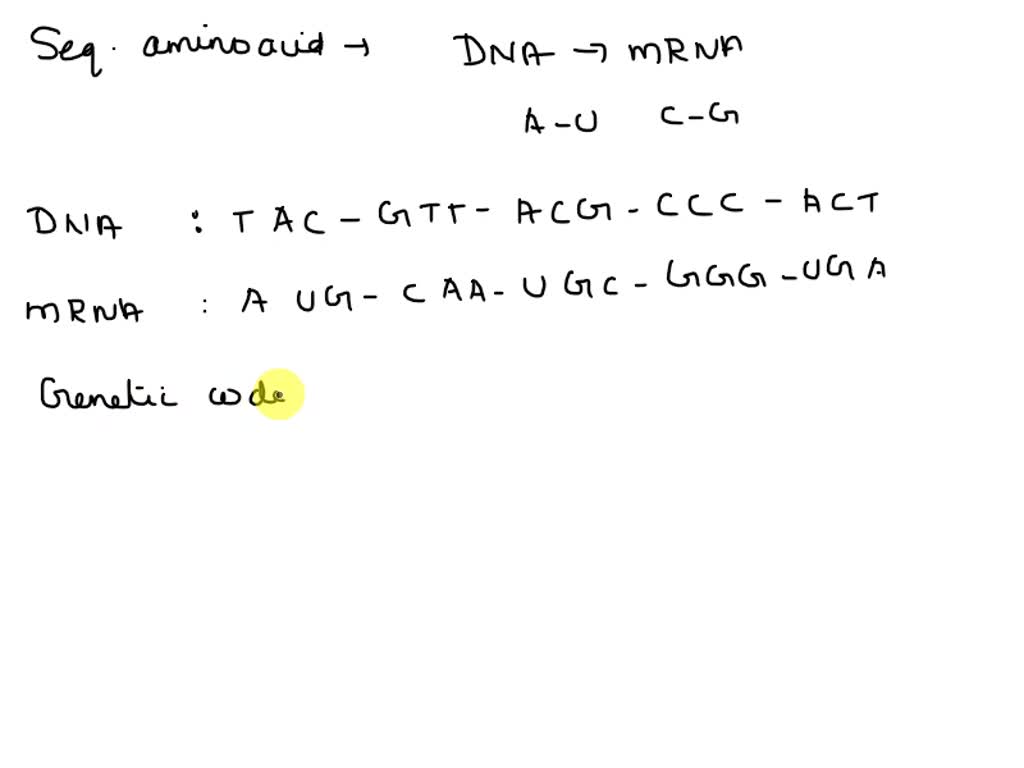 Seq. aminoacid → DNA → mRNA
A-U C-G
DNA : TAC - GTT - ACG - CCC - ACT
mRNA : AUG - CAA - UGC - GGG - UGA
Genetic code